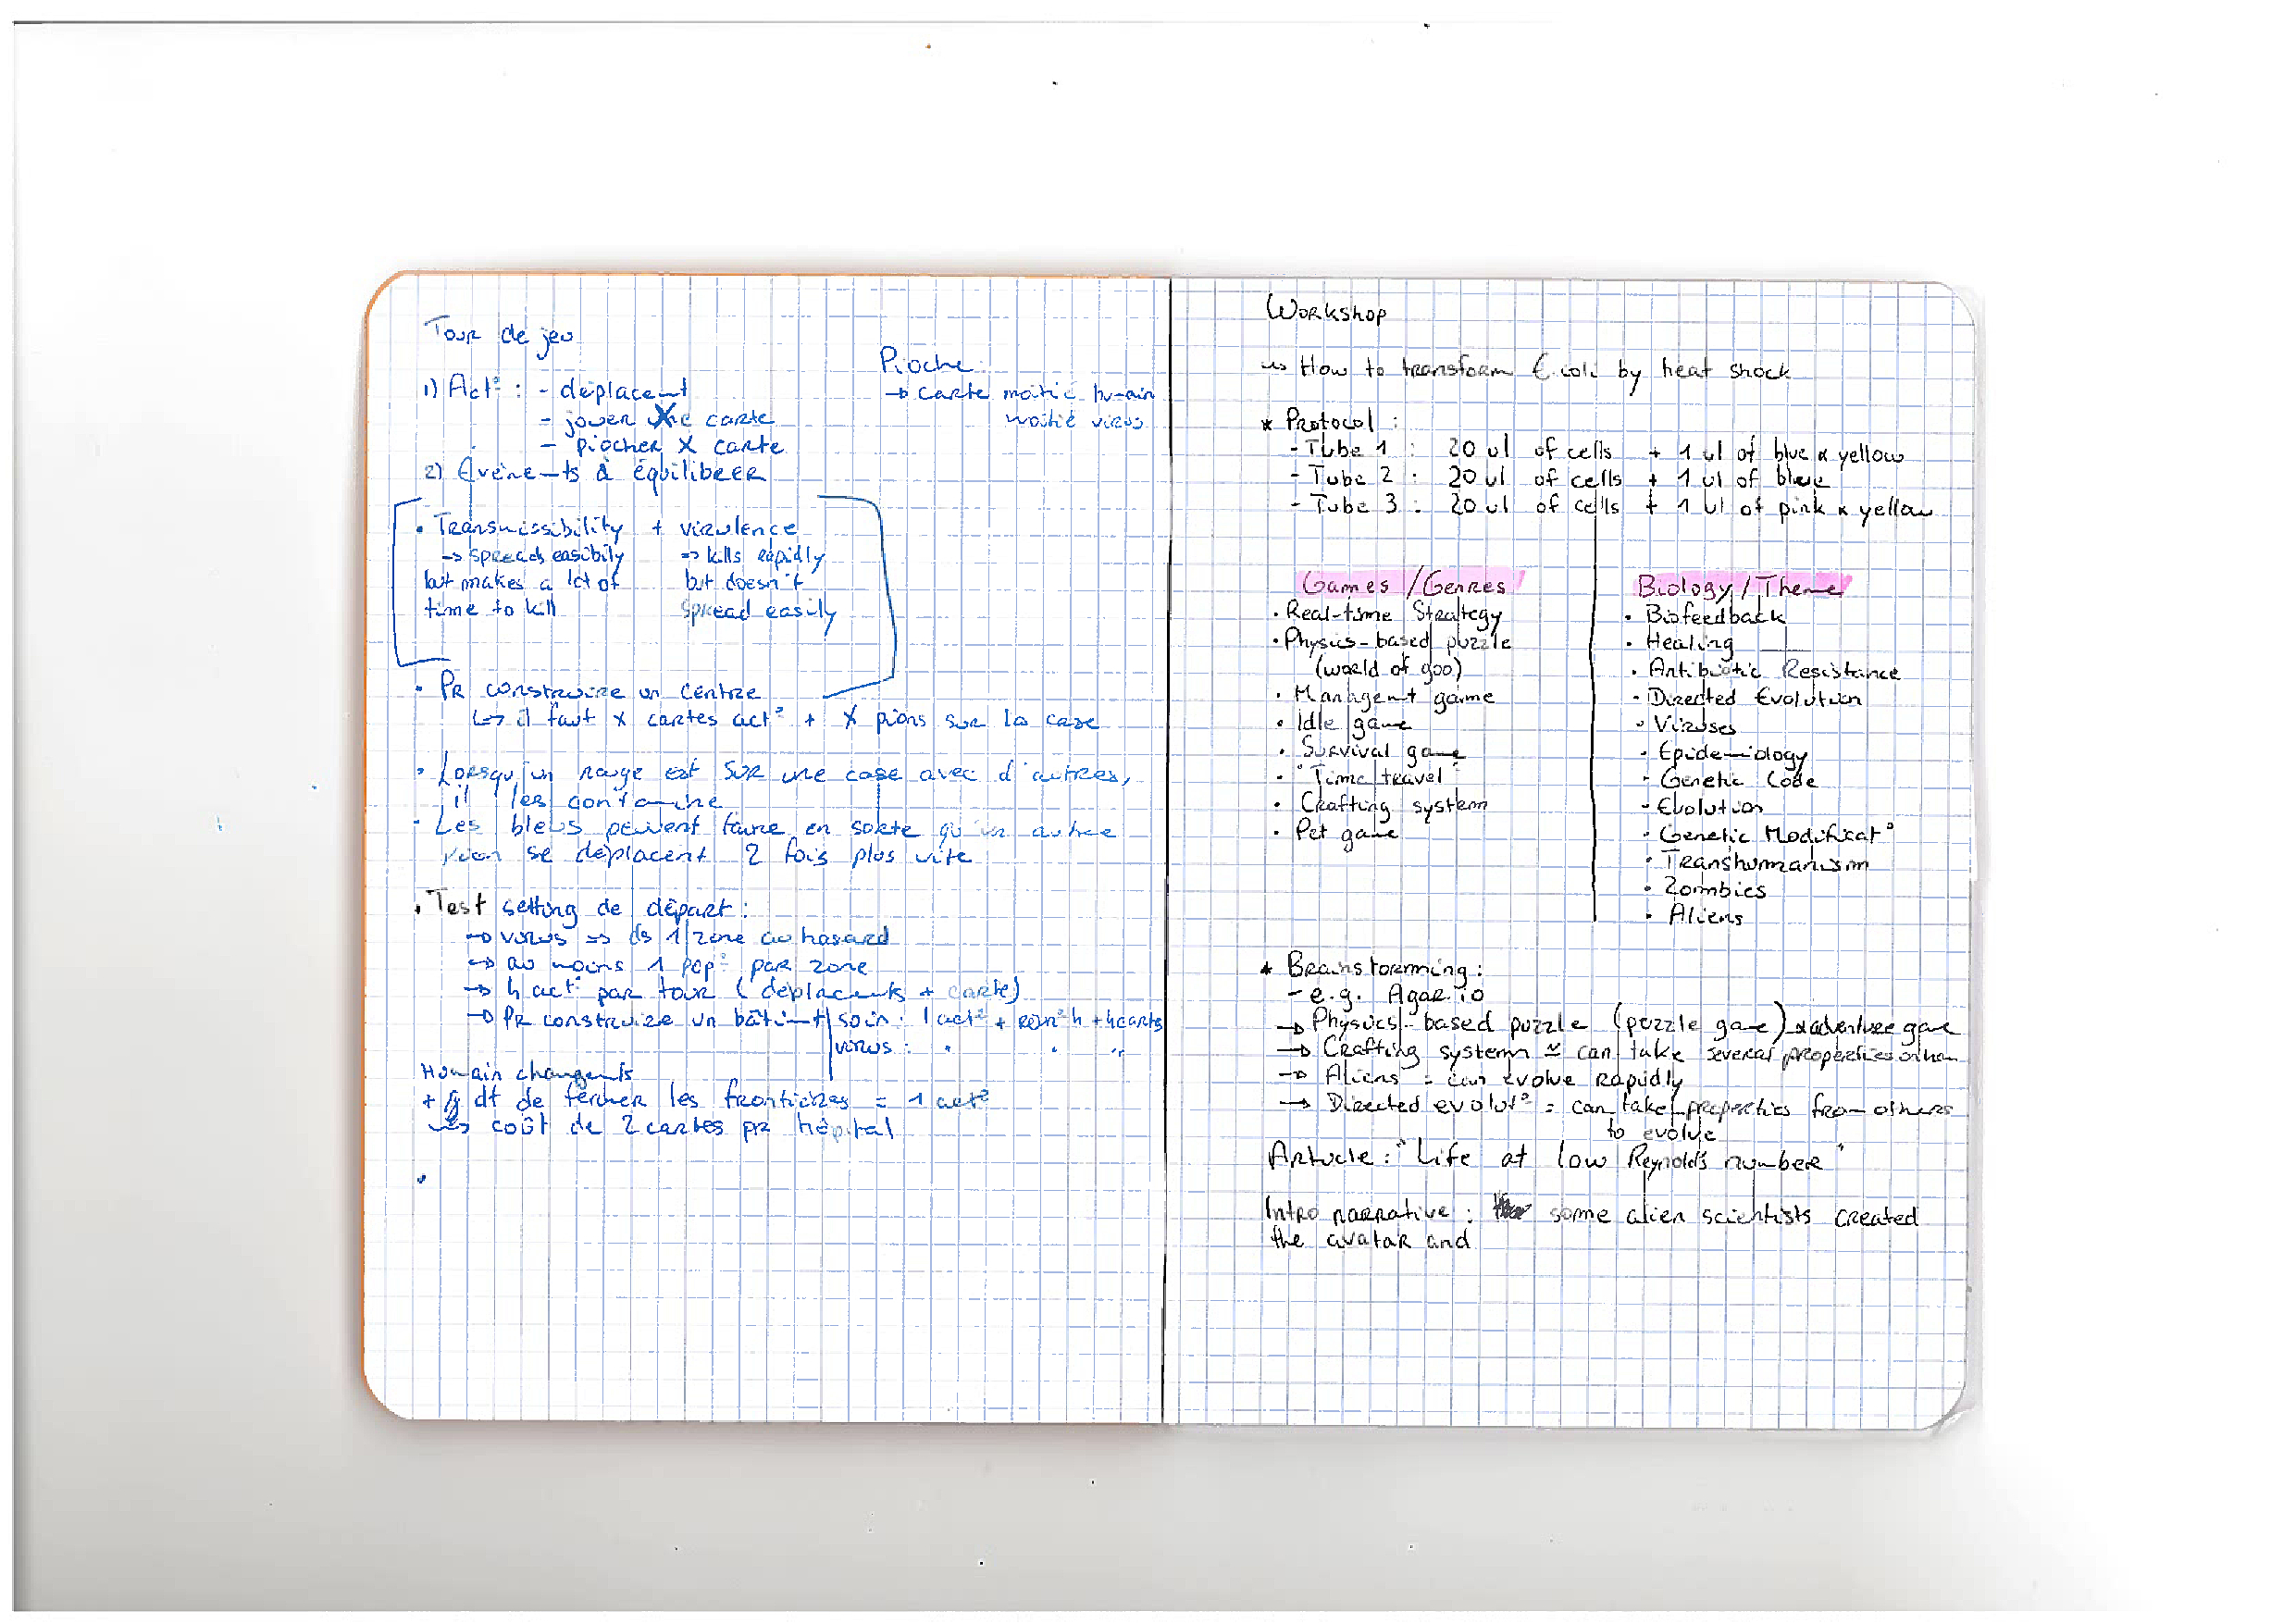 Tour de jeu
1) Act° : - déplacent
- jouer X carte
- piocher X carte
2) Événemts à équilibrer
Pioche
→ carte moitié humain
moitié virus
• Transmissibility + virulence
→ spreads easibily → kills rapidly
but makes a lot of but doesn't
time to kill spread easily
• Pr construire un centre
↳ il faut X cartes act° + X pions sur la case
• Lorsqu'un rouge est sur une case avec d'autres,
il les contamine
• Les bleus peuvent faire en sorte qu'un autre
pion se déplacent 2 fois plus vite
• Test setting de départ :
→ virus → ds 1 zone au hasard
→ au moins 1 pop° par zone
→ 4 act° par tour (déplacemts + carte)
→ Pr construire un bâtimt soin : 1 act° + + 4 carts
virus : " " "
Humain changemts
+ dt de fermer les frontières = 1 act°
↳ coût de 2 cartes pr hôpital
Workshop
↳ How to transform E.coli by heat shock
* Protocol :
- Tube 1 : 20 ul of cells + 1 ul of blue x yellow
- Tube 2 : 20 ul of cells + 1 ul of blue
- Tube 3 : 20 ul of cells + 1 ul of pink x yellow
Games / Genres
• Real-time Strategy
• Physics-based puzzle
(world of goo)
• Managent game
• Idle game
• Survival game
• "Time travel"
• Crafting system
• Pet game
Biology / Theme
• Biofeedback
• Healing
• Antibiotic Resistance
• Directed Evolution
• Viruses
• Epidemiology
• Genetic Code
• Evolution
• Genetic Modificat°
• Transhumanism
• Zombies
• Aliens
* Brainstorming :
- e.g. Agar.io
→ Physics-based puzzle (puzzle game) x adventure game
→ Crafting system = can take several properties
→ Aliens = can evolve rapidly
→ Directed evolut° = can take properties from others
to evolve
Article : "Life at low Reynolds number"
Intro narrative : some alien scientists created
the avatar and